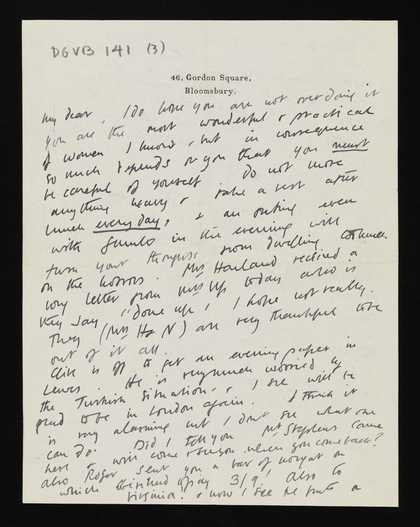 DGVB 141 (3)
46, Gordon Square,
Bloomsbury.
My dear, I do hope you are not over doing it
you are the most wonderful & practical
of women I know, but in consequence
so much depends on you that you must
be careful of yourself. Do not move
anything heavy & take a rest after
lunch every day, & an outing even
with in the evening will
turn your thoughts from dwelling too much
on the horrors. Mrs Harland received a
long letter from Mrs Up today who is
they say "done up", I hope not really.
They (Mrs H & N) are very thankful to be
out of it all.
Clive is off to get an evening paper in
Lewes. He is very much worried by
the Turkish situation, & I see will be
glad to be in London again. I think it
is very alarming but I don't see what one
can do. Did I tell you Mr Stephens came
here & will come & see you when you come back?
also Roger sent you a bar of nougat on
which I had to pay 3/9! Also to
Virginia. & now I see he puts a